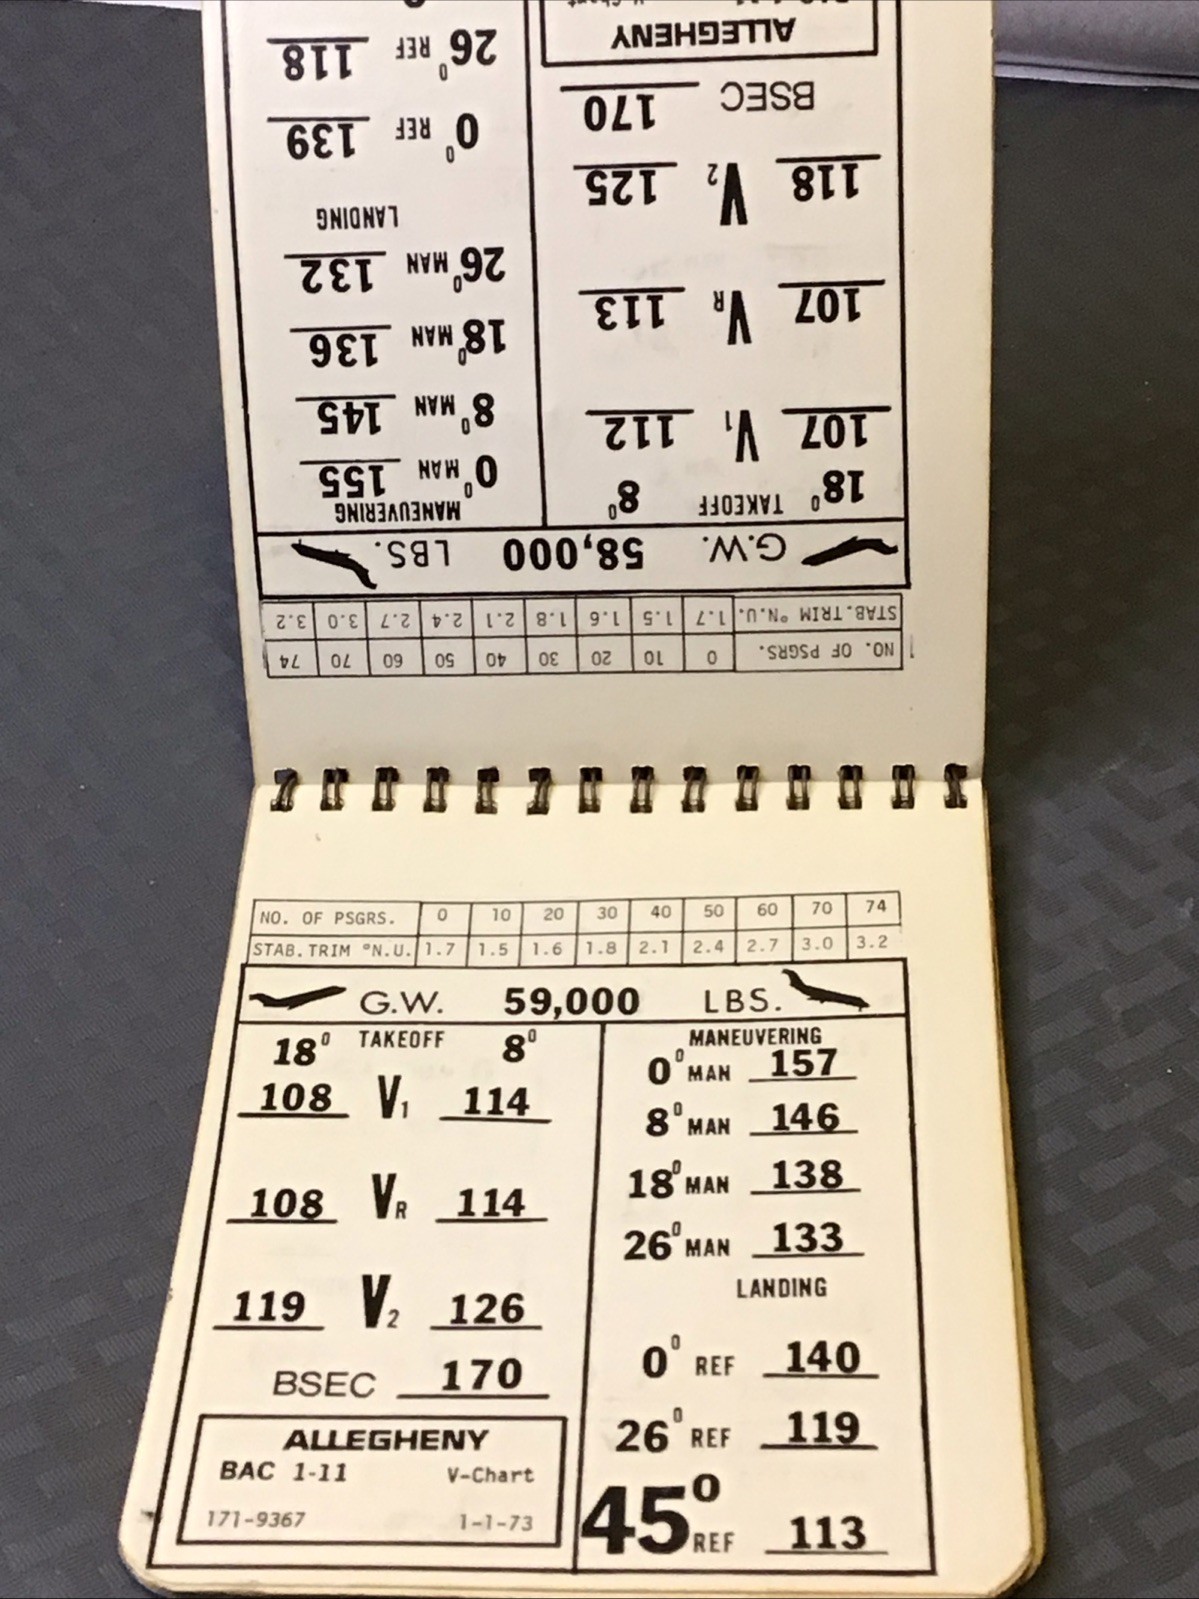 NO. OF PSGRS. 0 10 20 30 40 50 60 70 74
STAB.TRIM °N.U. 1.7 1.5 1.6 1.8 2.1 2.4 2.7 3.0 3.2
G.W. 58,000 LBS.
18° TAKEOFF 8°
107 V1 112
107 VR 113
118 V2 125
BSEC 170
ALLEGHENY
V-Chart
MANEUVERING
0° MAN 155
8° MAN 145
18° MAN 136
26° MAN 132
LANDING
0° REF 139
26° REF 118
NO. OF PSGRS. 0 10 20 30 40 50 60 70 74
STAB.TRIM °N.U. 1.7 1.5 1.6 1.8 2.1 2.4 2.7 3.0 3.2
G.W. 59,000 LBS.
18° TAKEOFF 8°
108 V1 114
108 VR 114
119 V2 126
BSEC 170
ALLEGHENY
BAC 1-11 V-Chart
171-9367 1-1-73
MANEUVERING
0° MAN 157
8° MAN 146
18° MAN 138
26° MAN 133
LANDING
0° REF 140
26° REF 119
45° REF 113